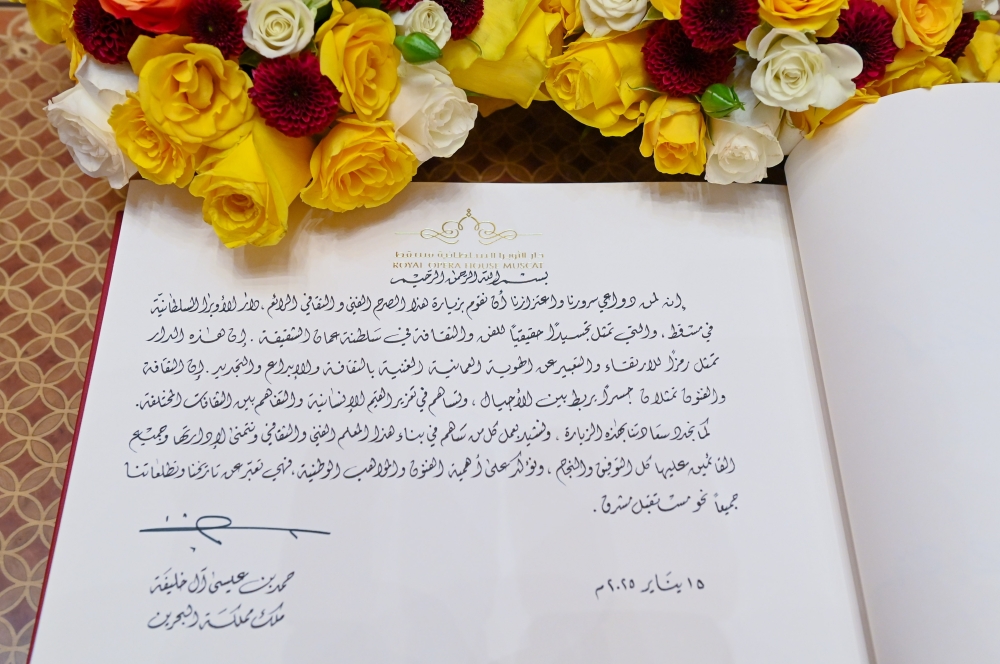 دار الأوبرا السلطانية مسقط
ROYAL OPERA HOUSE MUSCAT
بسم الله الرحمن الرحيم
إنه لمن دواعي سرورنا واعتزازنا أن نقوم بزيارة هذا الصرح الفني والثقافي الرائع، دار الأوبرا السلطانية
في مسقط، والتي تمثل تجسيداً حقيقياً للفن والثقافة في سلطنة عمان الشقيقة. إن هذه الدار
تمثل رمزاً للارتقاء والتعبير عن الهوية العمانية الغنية بالثقافة والإبداع والتجديد. إن الثقافة
والفنون تمثلان جسراً يربط بين الأجيال، وتساهم في تعزيز القيم الإنسانية والتفاهم بين الثقافات المختلفة.
كما نجدد سعادتنا بهذه الزيارة، ونشيد بعمل كل من ساهم في بناء هذا المعلم الفني والثقافي ونتمنى لإدارتها وجميع
القائمين عليها كل التوفيق والنجاح، ونؤكد على أهمية الفنون والمواهب الوطنية، فهي تعبّر عن تاريخنا وتطلعاتنا
جميعاً نحو مستقبل مشرق.
١٥ يناير ٢٠٢٥م
حمد بن عيسى آل خليفة
ملك مملكة البحرين